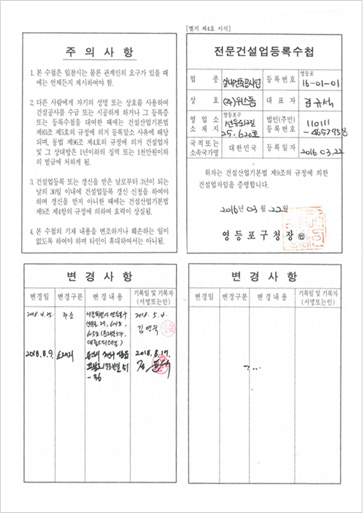 [별지 제4호 서식]
주 의 사 항
1. 본 수첩은 입찰시는 물론 관계인의 요구가 있을 때
에는 언제든지 제시하여야 함.
2. 다른 사람에게 자기의 성명 또는 상호를 사용하여
건설공사를 수급 또는 시공하게 하거나 그 등록증
또는 등록수첩을 대여한 때에는 건설산업기본법
제83조 제5호의 규정에 의거 등록말소 사유에 해당
되며, 동법 제96조 제4호의 규정에 의거 건설업자
및 그 상대방은 1년이하의 징역 또는 1천만원이하
의 벌금에 처하게 됨.
3. 건설업등록 또는 갱신을 받은 날로부터 3년이 되는
날의 30일 이내에 건설업등록 갱신 신청을 하여야
하며 갱신을 받지 아니한 때에는 건설산업기본법
제9조 제4항의 규정에 의하여 효력이 상실됨.
4. 본 수첩의 기재 내용을 변조하거나 훼손하는 일이
없도록 하여야 하며 타인이 휴대하여서는 아니됨.
전문건설업등록수첩
업 종 실내건축공사업 등 록 번 호 영등포 16-01-01
상 호 대 표 자
영 업 소 소 재 지 영등포구 선유로 25, 620호 법인(주민) 등 록 번 호 110111
국 적 또 는 소속국가명 대 한 민 국 등 록 일 자 2016.03.22
위자는 건설산업기본법 제9조의 규정에 의한
건설업자임을 증명합니다.
2016년 03월 22일
영 등 포 구 청 장 ㊞
변 경 사 항
변경일 변경구분 변 경 내 용 기록일 및 기록자 (서명또는인)
2018.4.25 주소 2018.5.4.
2018.8.9. 소재지 2018.8.17.
변 경 사 항
변경일 변경구분 변 경 내 용 기록일 및 기록자 (서명또는인)